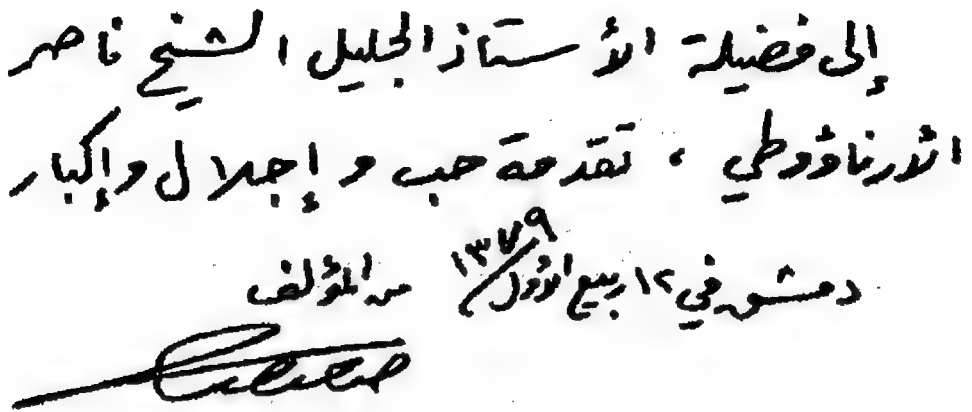 إلى فضيلة الأستاذ الجليل الشيخ ناصر
الأرناؤوطي ، تقدمة حب و إجلال وإكبار
دمشق في ١٢ ربيع الأول / ١٣٧٩ من المؤلف